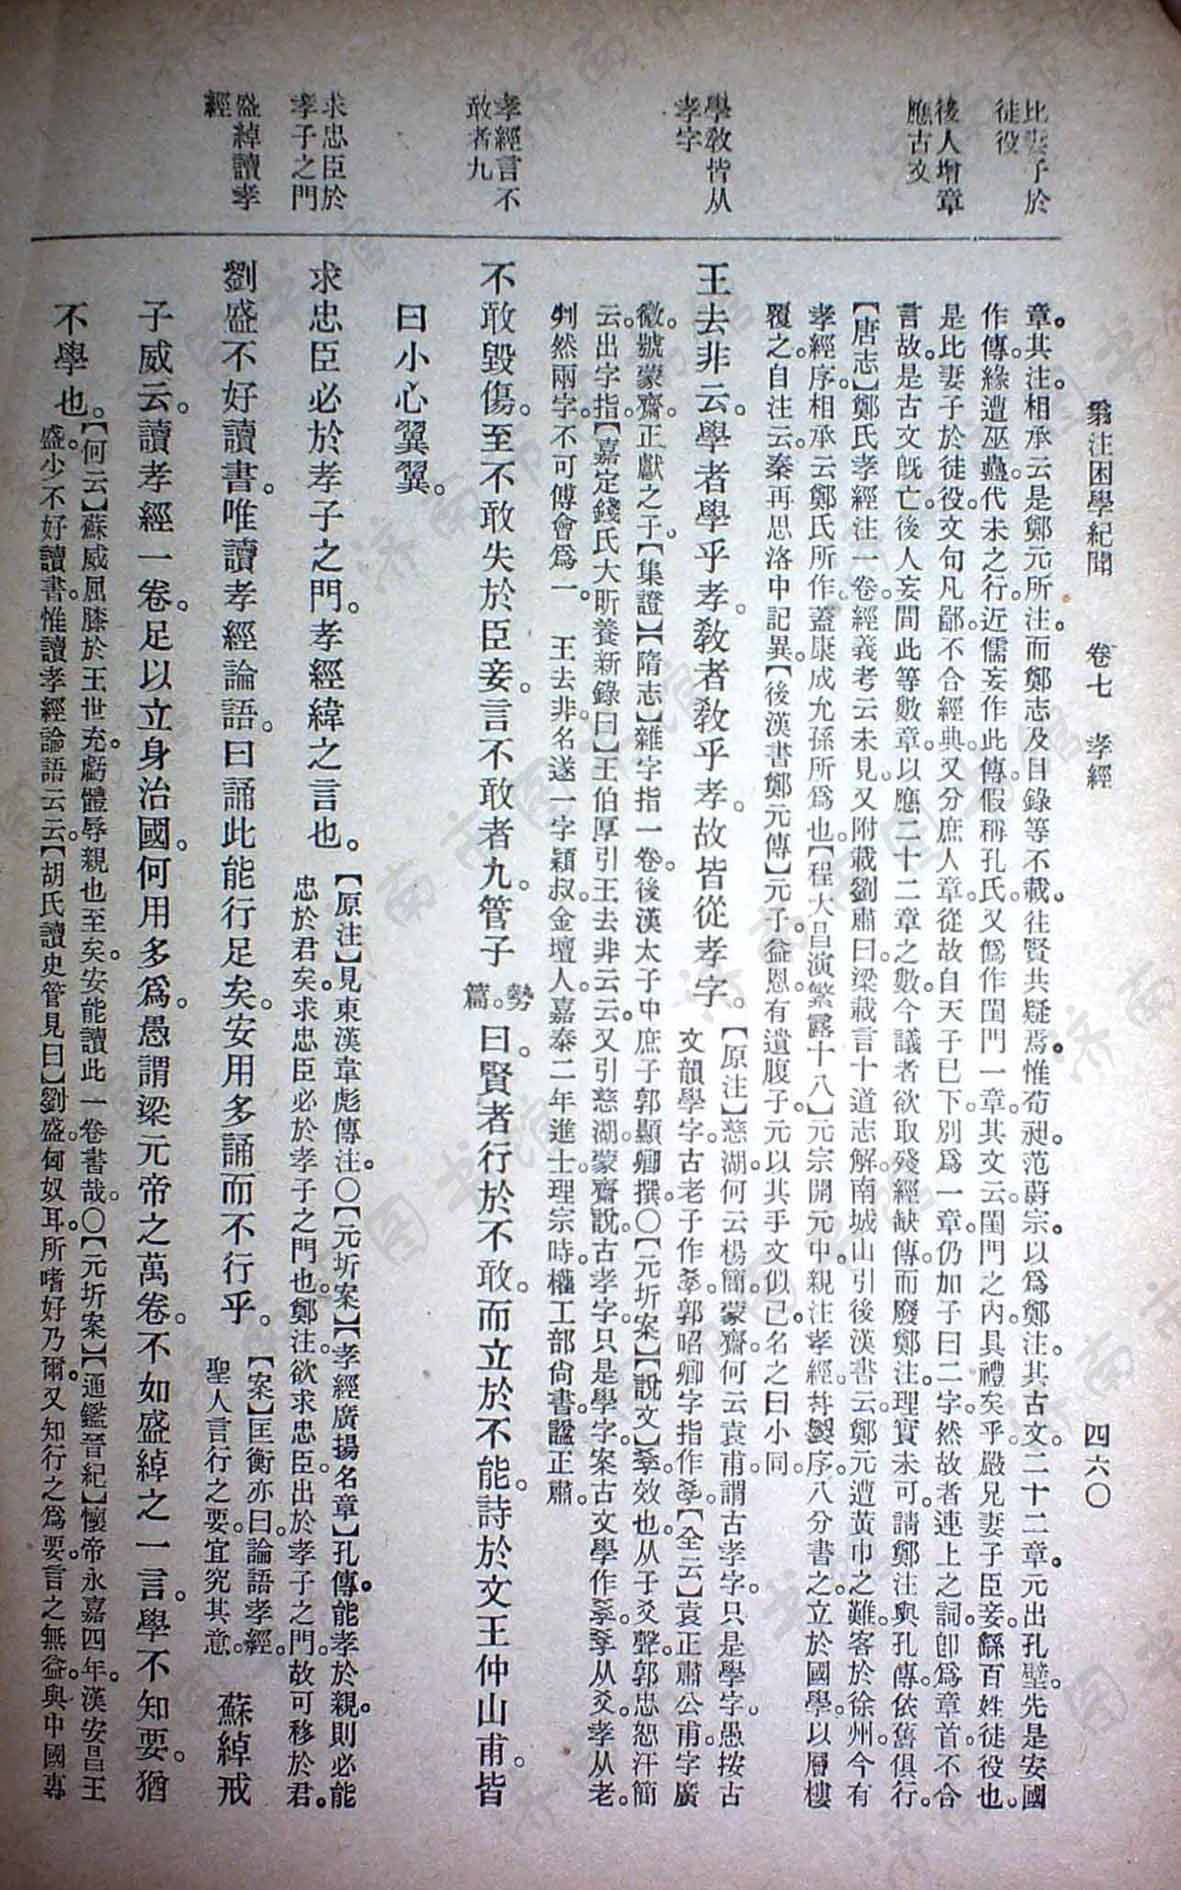 翁注困學紀聞　卷七　孝經　四六〇
比妻子於
徒役
後人增章
應古文
學敎皆从
孝字
孝經言不
敢者九
求忠臣於
孝子之門
盛綽讀孝
經
章。其注。相承云是鄭元所注。而鄭志及目錄等不載。往賢共疑焉。惟荀昶。范蔚宗。以爲鄭注。其古文。二十二章。元出孔壁。先是安國
作傳。緣遭巫蠱。代未之行。近儒妄作此傳。假稱孔氏。又僞作閨門一章。其文云。閨門之內。具禮矣乎。嚴兄妻子臣妾。繇百姓徒役也。
是比妻子於徒役。文句凡鄙。不合經典。又分庶人章。從故自天子已下。別爲一章。仍加子曰二字。然故者連上之詞。卽爲章首。不合
言故。是古文旣亡。後人妄間此等數章。以應二十二章之數。今議者欲取殘經缺傳。而廢鄭注。理實未可。請鄭注與孔傳。依舊俱行。
【唐志】鄭氏孝經注一卷。經義考云未見。又附載劉肅曰。梁載言十道志解南城山引後漢書云。鄭元遭黃巾之難。客於徐州。今有
孝經序。相承云鄭氏所作。蓋康成允孫所爲也。【程大昌演繁露十八】元宗開元中。親注孝經。幷製序。八分書之。立於國學。以層樓
覆之。自注云。秦再思洛中記異。【後漢書鄭元傳】元子益恩有遺腹子。元以其手文似己。名之曰小同。
王去非云。學者學乎孝。敎者敎乎孝。故皆從孝字。【原注】慈湖。何云楊簡。蒙齋。何云袁甫。謂古孝字。只是學字。愚按古
文韻學字。古老子作𡥉。郭昭卿字指作𡥉。【全云】袁正肅公甫。字廣
微。號蒙齋。正獻之子。【集證】【隋志】雜字指一卷。後漢太子中庶子郭顯卿撰。〇【元圻案】【說文】𡥉。效也。从子爻聲。郭忠恕汗簡
云。出字指。【嘉定錢氏大昕養新錄曰】王伯厚引王去非云云。又引慈湖。蒙齋說。古孝字。只是學字。案古文學作𡥉。𡥉从爻。孝从老。
判然兩字。不可傅會爲一。　王去非。名遂。一字穎叔。金壇人。嘉泰二年進士。理宗時。權工部尙書。諡正肅。
不敢毀傷。至不敢失於臣妾。言不敢者九。管子勢篇。曰。賢者行於不敢。而立於不能。詩於文王仲山甫。皆
曰小心翼翼。
求忠臣必於孝子之門。孝經緯之言也。【原注】見東漢韋彪傳注。〇【元圻案】【孝經廣揚名章】孔傳。能孝於親。則必能
忠於君矣。求忠臣必於孝子之門也。鄭注。欲求忠臣。出於孝子之門。故可移於君。
劉盛不好讀書。唯讀孝經論語。曰誦此能行足矣。安用多誦而不行乎。【案】匡衡亦曰。論語孝經。
聖人言行之要。宜究其意。　蘇綽戒
子威云。讀孝經一卷。足以立身治國。何用多爲。愚謂梁元帝之萬卷。不如盛綽之一言。學不知要。猶
不學也。【何云】蘇威屈膝於王世充。虧體辱親也至矣。安能讀此一卷書哉。〇【元圻案】【通鑑晉紀】懷帝永嘉四年。漢安昌王
盛。少不好讀書。惟讀孝經論語云云。【胡氏讀史管見曰】劉盛。匈奴耳。所嗜好乃爾。又知行之爲要。言之無益。與中國專